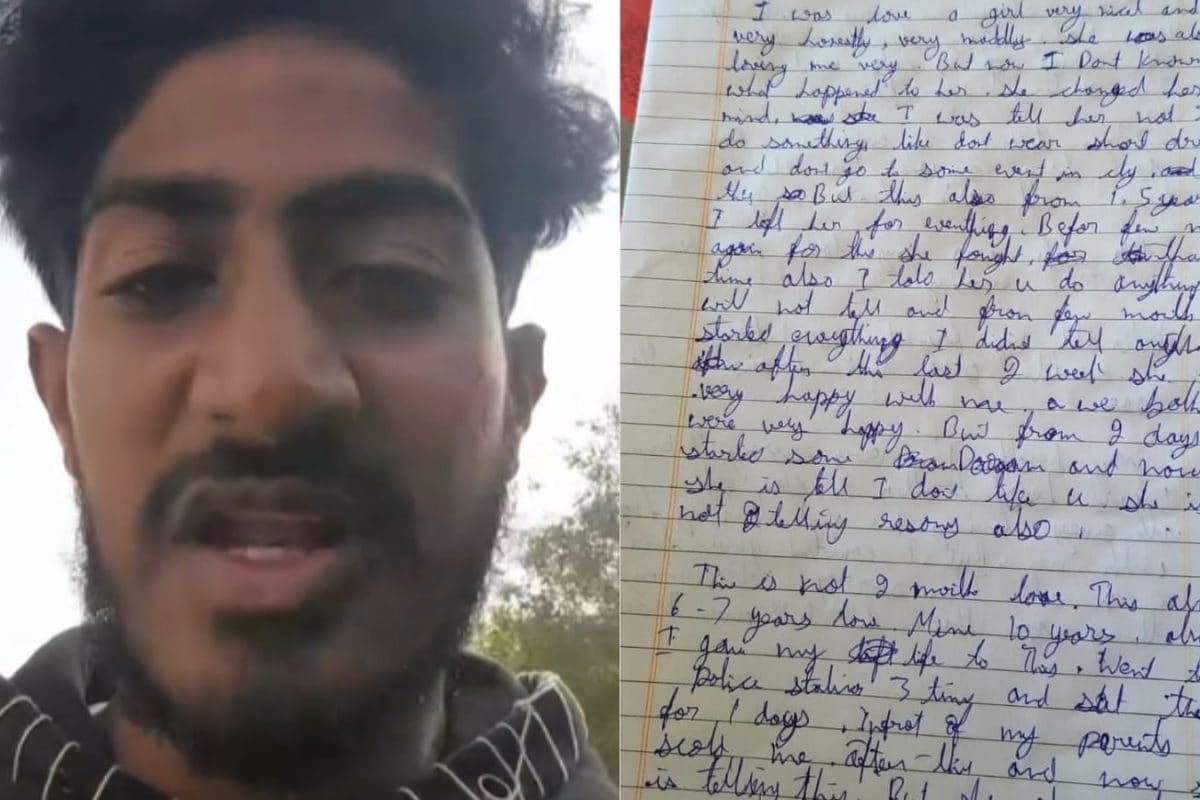 I was love a girl very nicel and
very honestly, very maddly. she was als
loving me very. But now I Dont Known
what happened to her. she changed her
mind, I was tell her not
do something like dont wear short dre
and dont go to some event in city, and
this so But this also from 1.5 year
I left her for everything. Befor few m
again for this she fought, tha
time also I told her u do anything
will not tell and from few month
started everything I didnt tell
after this last 2 week she
very happy with me, a we both
were very happy. But from 2 days
started some and now
she is tell I dont like u she i
not telling resons also.
This is not 2 month love. This
6-7 years love. Mine 10 years.
I gave my life to This. Went
Police station 3 and
for 1 days, Infrot of my parents
scold me. after this and now
is telling this. But